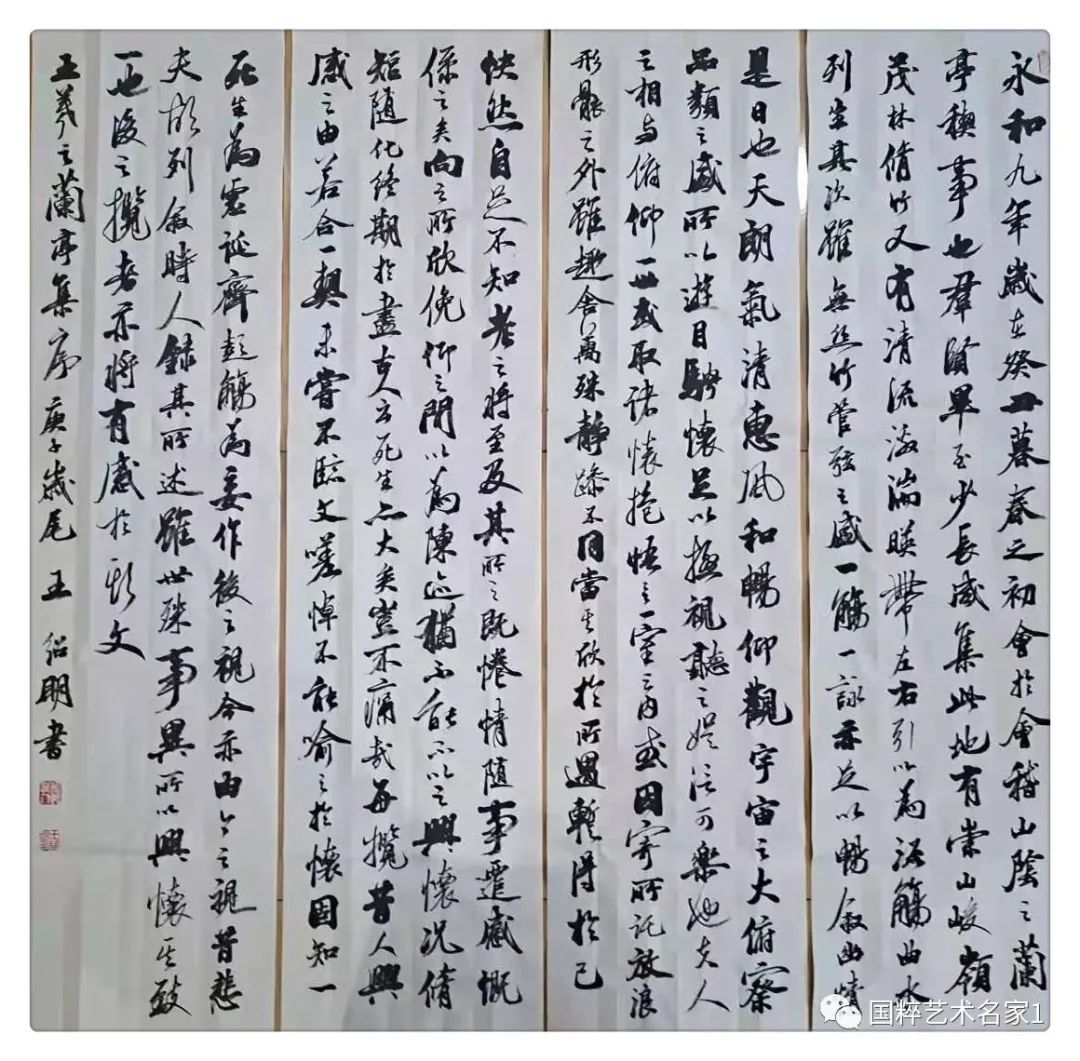 永和九年歲在癸丑暮春之初會於會稽山陰之蘭
亭稧事也羣賢畢至少長咸集此地有崇山峻嶺
茂林脩竹又有清流激湍暎帶左右引以為流觴曲水
列坐其次雖無絲竹管弦之盛一觴一詠亦足以暢敘幽情
是日也天朗氣清惠風和暢仰觀宇宙之大俯察
品類之盛所以遊目騁懷足以極視聽之娛信可樂也夫人
之相與俯仰一世或取諸懷抱悟言一室之內或因寄所託放浪
形骸之外雖趣舍萬殊靜躁不同當其欣於所遇暫得於己
快然自足不知老之將至及其所之既惓情隨事遷感慨
係之矣向之所欣俛仰之間以為陳迹猶不能不以之興懷況脩
短隨化終期於盡古人云死生亦大矣豈不痛哉每攬昔人興
感之由若合一契未嘗不臨文嗟悼不能喻之於懷固知一
死生為虛誕齊彭殤為妄作後之視今亦由今之視昔悲
夫故列敘時人錄其所述雖世殊事異所以興懷其致
一也後之攬者亦將有感於斯文
王羲之蘭亭集序庚子歲尾王紹明書
国粹艺术名家1